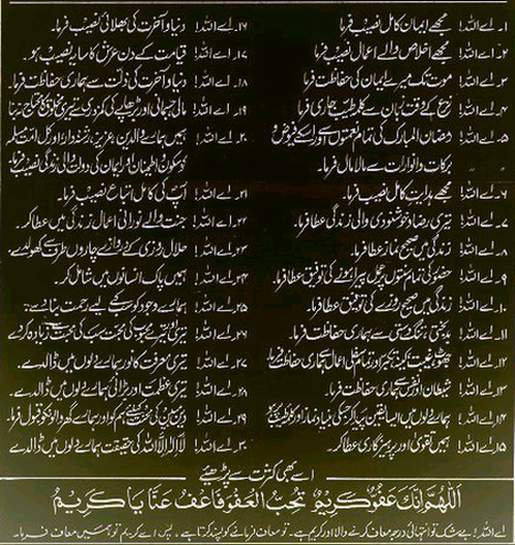 ۱۔ اے اللہ! مجھے ایمان کامل نصیب فرما
۲۔ اے اللہ! مجھے اخلاص والے اعمال نصیب فرما
۳۔ اے اللہ! موت تک میرے ایمان کی حفاظت فرما
۴۔ اے اللہ! نزع کے وقت زبان سے کلمہ طیبہ جاری فرما
۵۔ اے اللہ! رمضان المبارک کی تمام نعمتوں اور اسکے فیوض
برکات و انوارات سے مالا مال فرما۔
۶۔ اے اللہ! مجھے ہدایت کامل نصیب فرما۔
۷۔ اے اللہ! تیری رضا و خوشنودی والی زندگی عطا فرما۔
۸۔ اے اللہ! زندگی میں صحیح نماز عطا فرما۔
۹۔ اے اللہ! حضور کی تمام سنتوں پر عمل پیرا ہونے کی توفیق عطا فرما
۱۰۔ اے اللہ! زندگی میں صحیح روزے کی توفیق عطا فرما۔
۱۱۔ اے اللہ! بدبختی تنگدستی سے ہماری حفاظت فرما۔
۱۲۔ اے اللہ! جھوٹ غیبت کینہ تکبر اور تمام اعمال سے ہماری حفاظت فرما
۱۳۔ اے اللہ! شیطان اور نفس سے ہماری حفاظت فرما۔
۱۴۔ اے اللہ! ہمارے دلوں میں ایسا یقین پیدا کر جس کی بنیاد نماز اور
۱۵۔ اے اللہ! ہمیں تقویٰ اور پرہیزگاری عطا کر۔
۱۶۔ اے اللہ! دنیا و آخرت کی بھلائی نصیب فرما۔
۱۷۔ اے اللہ! قیامت کے دن عرش کا سایہ نصیب ہو۔
۱۸۔ اے اللہ! دنیا و آخرت کی ذلت سے ہماری حفاظت فرما
۱۹۔ اے اللہ! مالی جسمانی اور بڑھاپے کی کمزوری سے تیری مخلوق کا محتاج نہ بنا
۲۰۔ اے اللہ! ہمیں ہمارے والدین عزیز رشتہ دار اور کل امت مسلمہ
کو سکون و اطمینان اور ایمان کی دولت والی زندگی نصیب فرما۔
۲۱۔ اے اللہ! آپ کی کامل اتباع نصیب فرما۔
۲۲۔ اے اللہ! جنت والے نورانی اعمال زندگی میں عطا کر
۲۳۔ اے اللہ! حلال روزی کے دروازے چاروں طرف سے کھولدے
۲۴۔ اے اللہ! ہمیں پاک انسانوں میں شامل کر۔
۲۵۔ اے اللہ! ہمارے وجود کو سب کے لیے رحمت بنا دے۔
۲۶۔ اے اللہ! تیری اور تیرے محبوب کی محبت سب کی محبت سے زیادہ کر دے
۲۷۔ اے اللہ! تیری معرفت کا نور ہمارے دلوں میں ڈالدے۔
۲۸۔ اے اللہ! تیری عظمت اور بڑائی ہمارے دلوں میں ڈالدے
۲۹۔ اے اللہ! دین مبین کی ہم کو اور ہمارے گھر والوں کو قبول فرما۔
۳۰۔ اے اللہ! لا الہ الا اللہ کی حقیقت ہمارے دلوں میں ڈالدے
اسے بھی کثرت سے پڑھیئے
اَللّٰهُمَّ اِنَّكَ عَفُوٌّ كَرِيْمٌ تُحِبُّ الْعَفْوَ فَاعْفُ عَنَّا يَا كَرِيْمُ
اے اللہ! بے شک تو انتہائی درجہ معاف کرنے والا اور کریم ہے۔ تو معاف فرمانے کو پسند کرتا ہے، پس اے کریم تو ہمیں معاف فرما۔